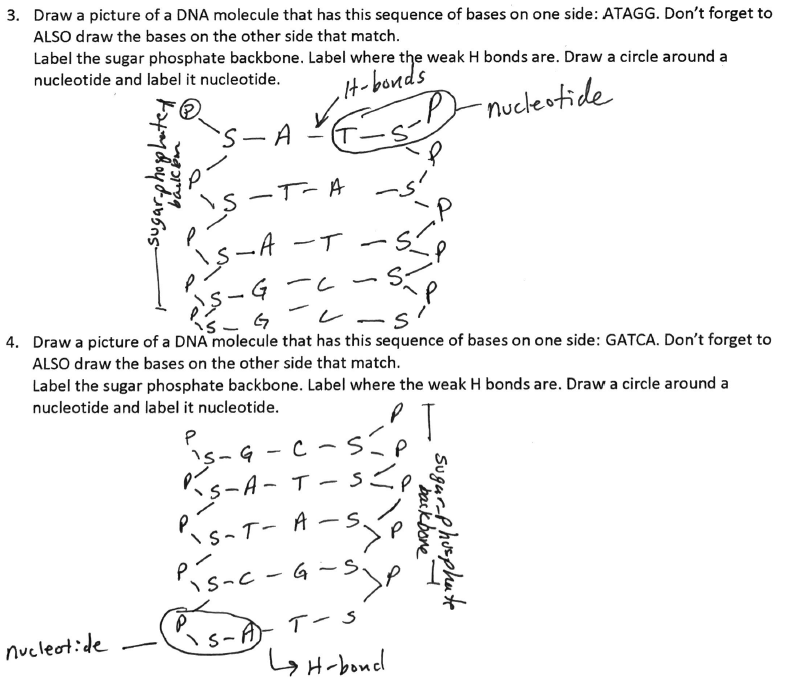 3. Draw a picture of a DNA molecule that has this sequence of bases on one side: ATAGG. Don't forget to
ALSO draw the bases on the other side that match.
Label the sugar phosphate backbone. Label where the weak H bonds are. Draw a circle around a
nucleotide and label it nucleotide.
H-bonds
nucleotide
sugar-phosphate
P
P
S - A - T - S
P
P
S - T - A - S
P
P
S - A - T - S
P
P
S - G - C - S
P
P
S - G - C - S
4. Draw a picture of a DNA molecule that has this sequence of bases on one side: GATCA. Don't forget to
ALSO draw the bases on the other side that match.
Label the sugar phosphate backbone. Label where the weak H bonds are. Draw a circle around a
nucleotide and label it nucleotide.
P
P
S - G - C - S
P
P
S - A - T - S
P
P
S - T - A - S
P
P
S - C - G - S
P
P
S - A - T - S
sugar-phosphate
backbone
nucleotide
H-bond